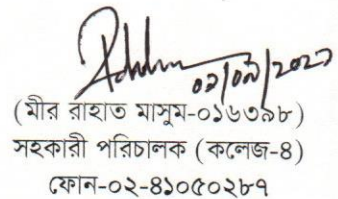 ০১/০৯/২০২১
(মীর রাহাত মাসুম-০১৬৩৯৮)
সহকারী পরিচালক (কলেজ-৪)
ফোন-০২-৪১০৫০২৮৭